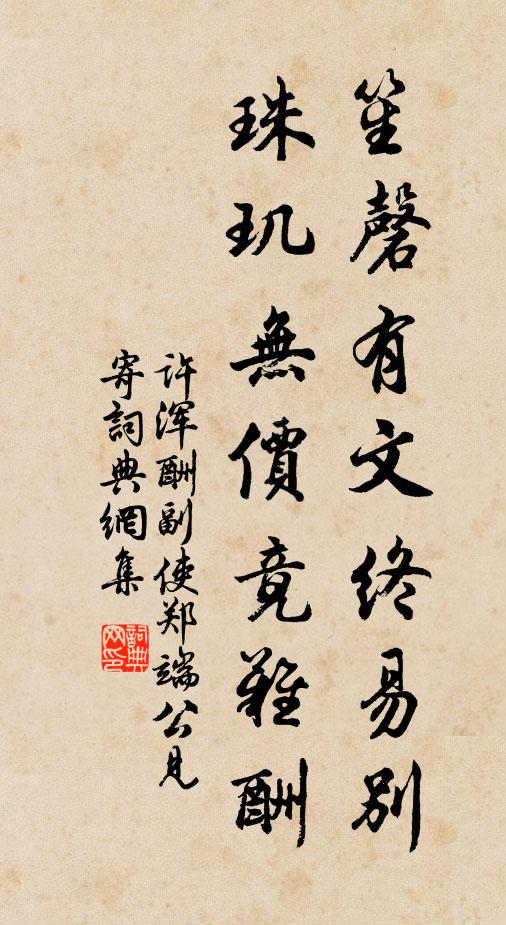 笙磬有文终易别
珠玑無價竟難酬
许浑酬副使郑端公见
寄詞典網集
詞典网印